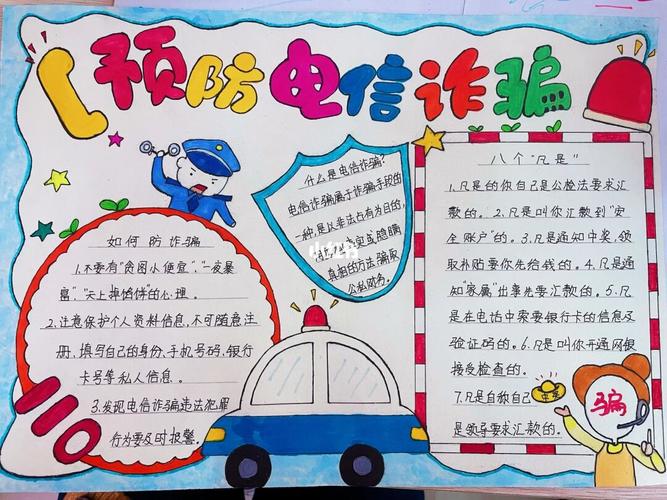 预防电信诈骗
什么是电信诈骗?
电信诈骗属于诈骗手段的
一种,是以非法占有为目的,
实或隐瞒
真相的方法骗取
公私财务。
小红书
如何防诈骗
1.不要有"贪图小便宜"、"一夜暴
富"、"天上掉馅饼"的心理。
2.注意保护个人资料信息,不可随意注
册、填写自己的身份、手机号码、银行
卡号等私人信息。
3.发现电信诈骗违法犯罪
行为要及时报警。
110
八个"凡是"
1.凡是的你自己是公检法要求汇
款的。2.凡是叫你汇款到"安
全账户"的。3.凡是通知中奖,领
取补贴要你先给钱的。4.凡是通
知"家属"出事先要汇款的。5.凡
是在电话中索要银行卡的信息及
验证码的。6.凡是叫你开通网银
接受检查的。
7.凡是自称自己
是领导要求汇款的。
骗